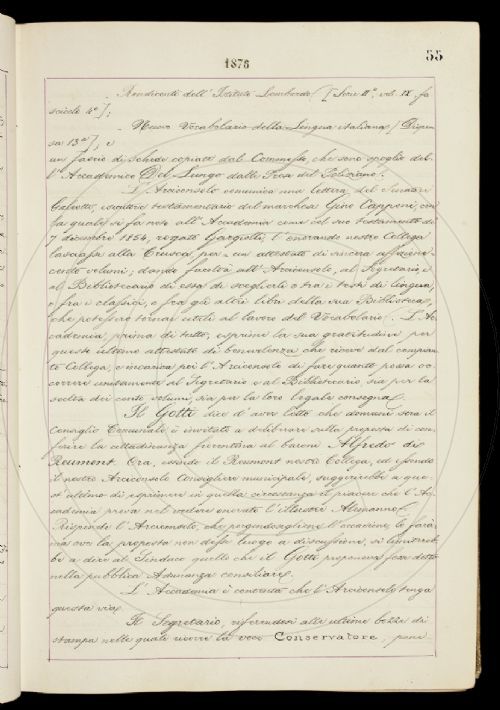 55
1876
Rendiconti dell'Istituto Lombardo [Serie IIa, vol. IX, fa-
scicolo 4o];
Nuovo Vocabolario della Lingua italiana [Dispen-
sa 13a], e
un fascio di schede copiate dal Commesso, che sono spoglio del-
l'Accademico Del Lungo dalle Prose del Poliziano.
L'Arciconsolo comunica una lettera del Senatore
esecutore testamentario del marchese Gino Capponi, con
la quale si fa noto all'Accademia come col suo testamento del
7 dicembre 1854, rogato Gargiolli, l'onorando nostro Collega
lasciasse alla Crusca, per un attestato di sincera affezione,
cento volumi; dando facoltà all'Arciconsolo, al Segretario, e
al Bibliotecario di essa di sceglierli o tra i testi di lingua,
o fra i classici, o fra gli altri libri della sua Biblioteca,
che potessero tornar utili al lavoro del Vocabolario. L'Ac-
cademia, prima di tutto, esprime la sua gratitudine per
questo ultimo attestato di benevolenza che riceve dal compian-
to Collega, e incarica poi l'Arciconsolo di fare quanto possa oc-
correre unitamente al Segretario e al Bibliotecario, sia per la
scelta dei cento volumi, sia per la loro legale consegna.
Il Gotti dice d'aver letto che domani sera il
Consiglio Comunale è invitato a deliberare sulla proposta di con-
ferire la cittadinanza fiorentina al barone Alfredo di
Reumont. Ora, essendo il Reumont nostro Collega, ed essendo
il nostro Arciconsolo Consigliere municipale, suggerirebbe a que-
st'ultimo di esprimere in quella circostanza il piacere che l'Ac-
cademia prova nel vedere onorato l'illustre Alemanno.
Risponde l'Arciconsolo, che porgendosegliene l'occasione, lo farà;
ma ove la proposta non desse luogo a discussione, si limiterebbe
a dire al Sindaco quello che il Gotti proponeva fosse detto
nella pubblica Adunanza consiliare.
L'Accademia è contenta che l'Arciconsolo tenga
questa via.
Il Segretario, riferendosi alle ultime bozze di
stampa nelle quali ricorre la voce Conservatore, pone